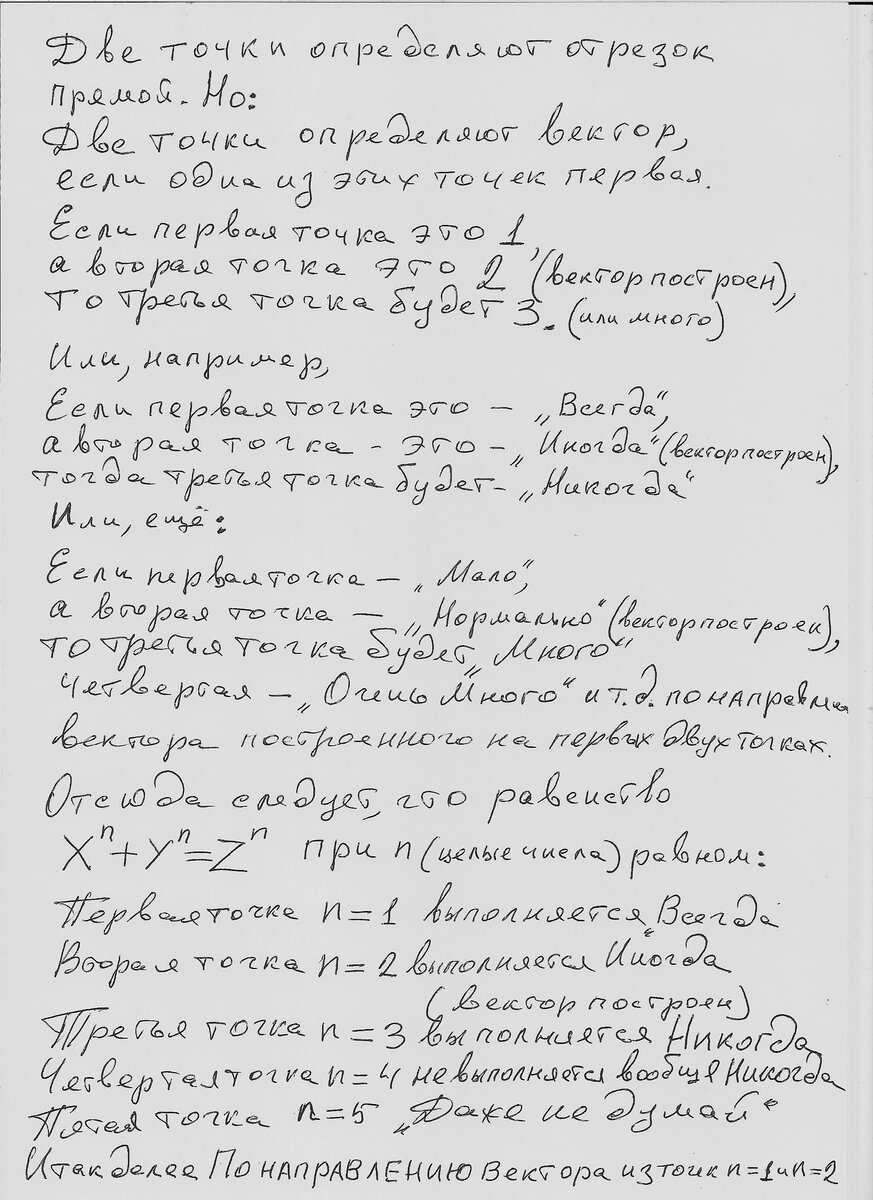 Две точки определяют отрезок
прямой. Но:
Две точки определяют вектор,
если одна из этих точек первая.
Если первая точка это 1,
а вторая точка это 2 (вектор построен),
то третья точка будет 3. (или много)
Или, например,
Если первая точка это – „Всегда“,
а вторая точка - это – „Иногда“ (вектор построен),
тогда третья точка будет – „Никогда“
Или, ещё:
Если первая точка – „Мало“,
а вторая точка – „Нормально“ (вектор построен),
то третья точка будет „Много“
Четвертая – „Очень Много“ и т.д. по направлен
вектора построенного на первых двух точках.
Отсюда следует, что равенство
Xⁿ+Yⁿ=Zⁿ при n (целые числа) равном:
Первая точка n=1 выполняется „Всегда“
Вторая точка n=2 выполняется Иногда
(вектор построен)
Третья точка n=3 выполняется Никогда
Четвертая точка n=4 не выполняется вообще Никогда
Пятая точка n=5 „Даже не думай“
И так далее ПО НАПРАВЛЕНИЮ Вектора из точек n=1 и n=2